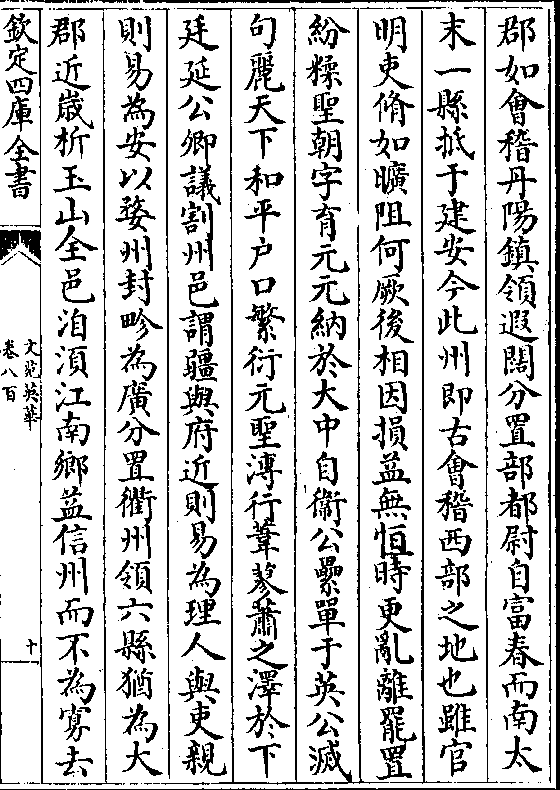 郡如會稽丹陽鎮領遐闊分置部都尉自富春而南太
末一縣抵于建安今此州即古會稽西部之地也雖官
明吏脩如曠阻何厥後相因損益無恒時更亂離罷置
紛糅聖朝字育元元納於大中自衛公纍單于英公滅
句麗天下和平户口繁衍元聖溥行葦蓼蕭之澤於下
廷延公卿議割州邑謂疆與府近則易為理人與吏親
則易為安以婺州封畛為廣分置衢州領六縣猶為大
郡近嵗析玉山全邑洎湏江南鄉益信州而不為寡去
欽定四庫全書
文苑英華
卷八百
十